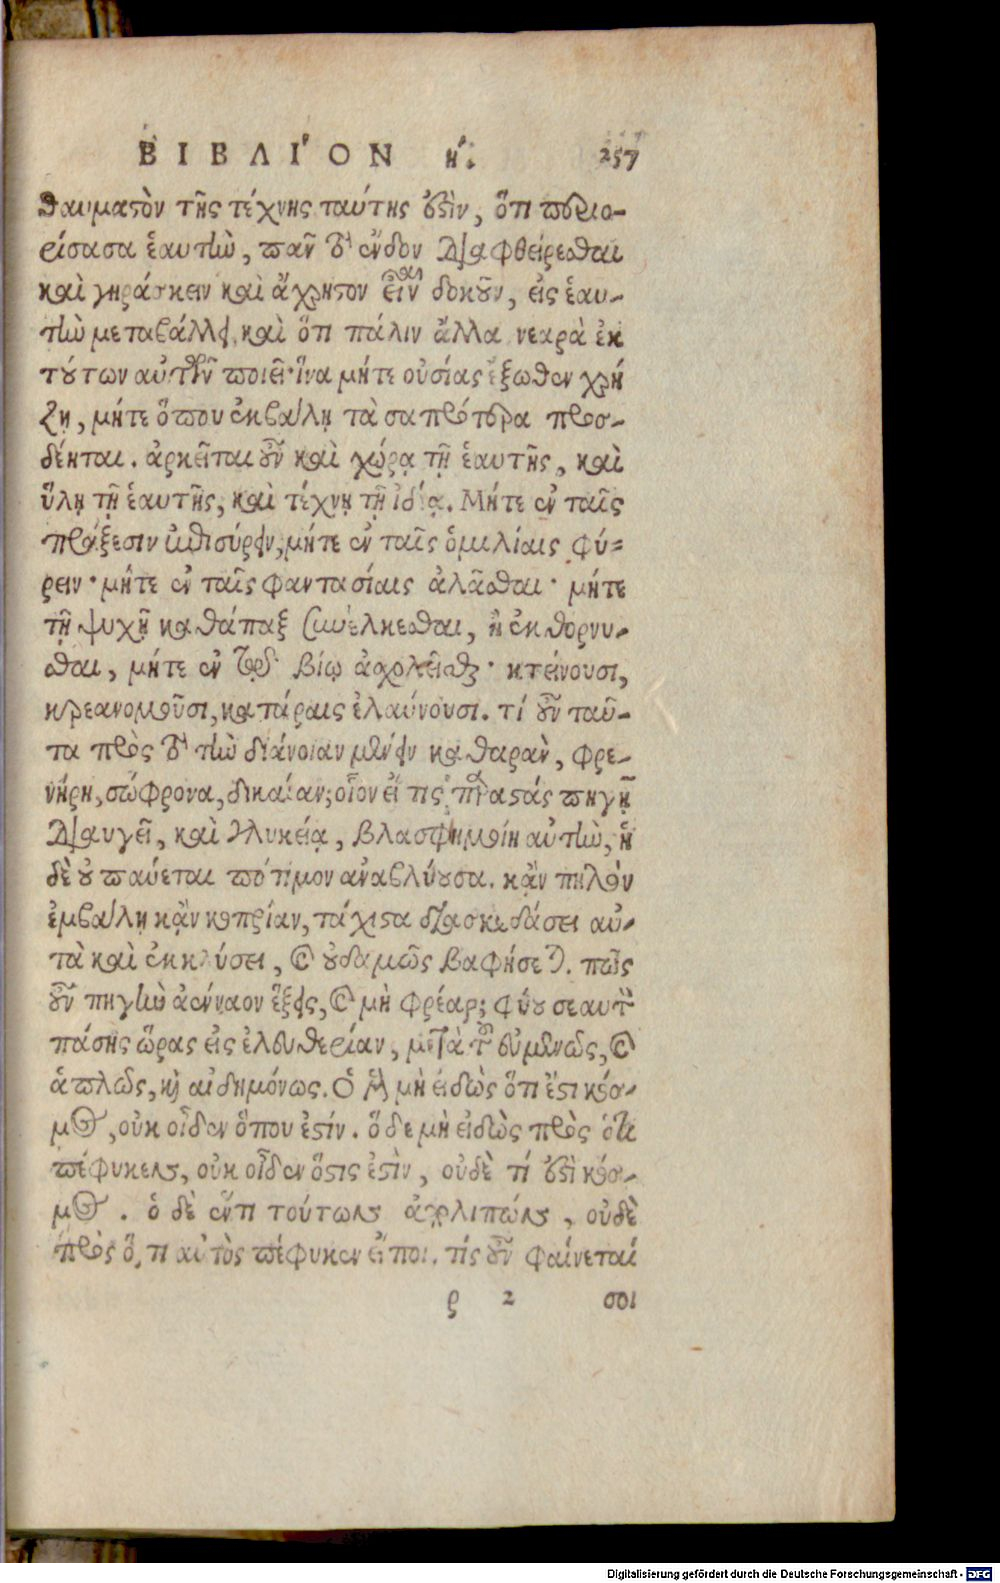 ΒΙΒΛΙ´ΟΝ η´. 257
θαυμαστὸν τῆς τέχνης ταύτης ἐστὶν, ὅτι περιο-
ρίσασα ἑαυτὴν, πᾶν τὸ ἔνδον διαφθείρεσθαι
καὶ γηράσκειν καὶ ἄχρηστον εἶναι δοκοῦν, εἰς ἑαυ-
τὴν μεταβάλλει, καὶ ὅτι πάλιν ἄλλα νεαρὰ ἐκ
τούτων αὐτῶν ποιεῖ· ἵνα μήτε οὐσίας ἔξωθεν χρή
ζῃ, μήτε ὅπου ἐκβάλῃ τὰ σαπρότερα προσ-
δέηται. ἀρκεῖται οὖν καὶ χώρᾳ τῇ ἑαυτῆς, καὶ
ὕλῃ τῇ ἑαυτῆς, καὶ τέχνῃ τῇ ἰδίᾳ. Μήτε ἐν ταῖς
πράξεσιν ἐπισύρειν, μήτε ἐν ταῖς ὁμιλίαις φύ-
ρειν· μήτε ἐν ταῖς φαντασίαις ἀλᾶσθαι· μήτε
τῇ ψυχῇ καθάπαξ συνέλκεσθαι, ἢ ἐκθόρνυ-
σθαι, μήτε ἐν τῷ βίῳ ἀσχολεῖσθαι· κτείνουσι,
κρεανομοῦσι, κατάραις ἐλαύνουσι. τί οὖν ταῦ-
τα πρὸς τὸ τὴν διάνοιαν μένειν καθαρὰν, φρε-
νήρη, σώφρονα, δικαίαν; οἷον εἴ τις παραστάς πηγῇ
διαυγεῖ, καὶ γλυκείᾳ, βλασφημοίη αὐτὴν, ἡ
δὲ οὐ παύεται πότιμον ἀναβλύουσα. κᾂν πηλὸν
ἐμβάλῃ κᾂν κοπρίαν, τάχιστα διασκεδάσει αὐ-
τὰ καὶ ἐκκλύσει, καὶ οὐδαμῶς βαφήσεται. πῶς
οὖν πηγὴν ἀένναον ἕξεις, καὶ μὴ φρέαρ; φύου σεαυτὸν
πάσης ὥρας εἰς ἐλευθερίαν, μετὰ τοῦ εὐμενῶς, καὶ
ἁπλῶς, καὶ αἰδημόνως. Ὁ μὲν μὴ εἰδὼς ὅτι ἔστι κόσ-
μος, οὐκ οἶδεν ὅπου ἐστίν. ὅ δε μὴ εἰδὼς πρὸς ὅτι
πέφυκεν, οὐκ οἶδεν ὅστις ἐστὶν, οὐδὲ τί ἐστὶ κόσ-
μος. ὁ δὲ ἕν τι τούτων ἀπολιπών, οὐδὲ
πρὸς ὅ, τι αὐτὸς πέφυκεν εἴποι. τίς οὖν φαίνεταί
ρ 2 σοι
Digitalisierung gefördert durch die Deutsche Forschungsgemeinschaft - DFG